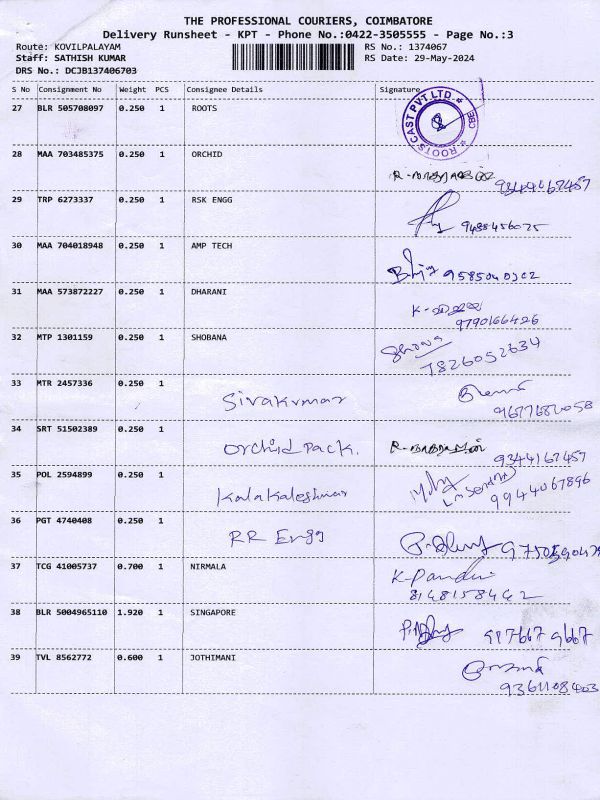 THE PROFESSIONAL COURIERS, COIMBATORE
Delivery Runsheet - KPT - Phone No.:0422-3505555 - Page No.:3
Route: KOVILPALAYAM RS No.: 1374067
Staff: SATHISH KUMAR RS Date: 29-May-2024
DRS No.: DCJB137406703
S No Consignment No Weight PCS Consignee Details Signature
27 BLR 505708097 0.250 1 ROOTS
ROOTS CAST PVT LTD CBE
28 MAA 703485375 0.250 1 ORCHID
29 TRP 6273337 0.250 1 RSK ENGG
30 MAA 704018948 0.250 1 AMP TECH
31 MAA 573872227 0.250 1 DHARANI
9790166426
32 MTP 1301159 0.250 1 SHOBANA
7826052634
33 MTR 2457336 0.250 1 Sivakumar
34 SRT 51502389 0.250 1 Orchid Pack.
9344167457
35 POL 2594899 0.250 1 Kalakaleshwar
9944067896
36 PGT 4740408 0.250 1 RR Engg
37 TCG 41005737 0.700 1 NIRMALA
K-Pandi
8148158442
38 BLR 5004965110 1.920 1 SINGAPORE
39 TVL 8562772 0.600 1 JOTHIMANI
9361108403